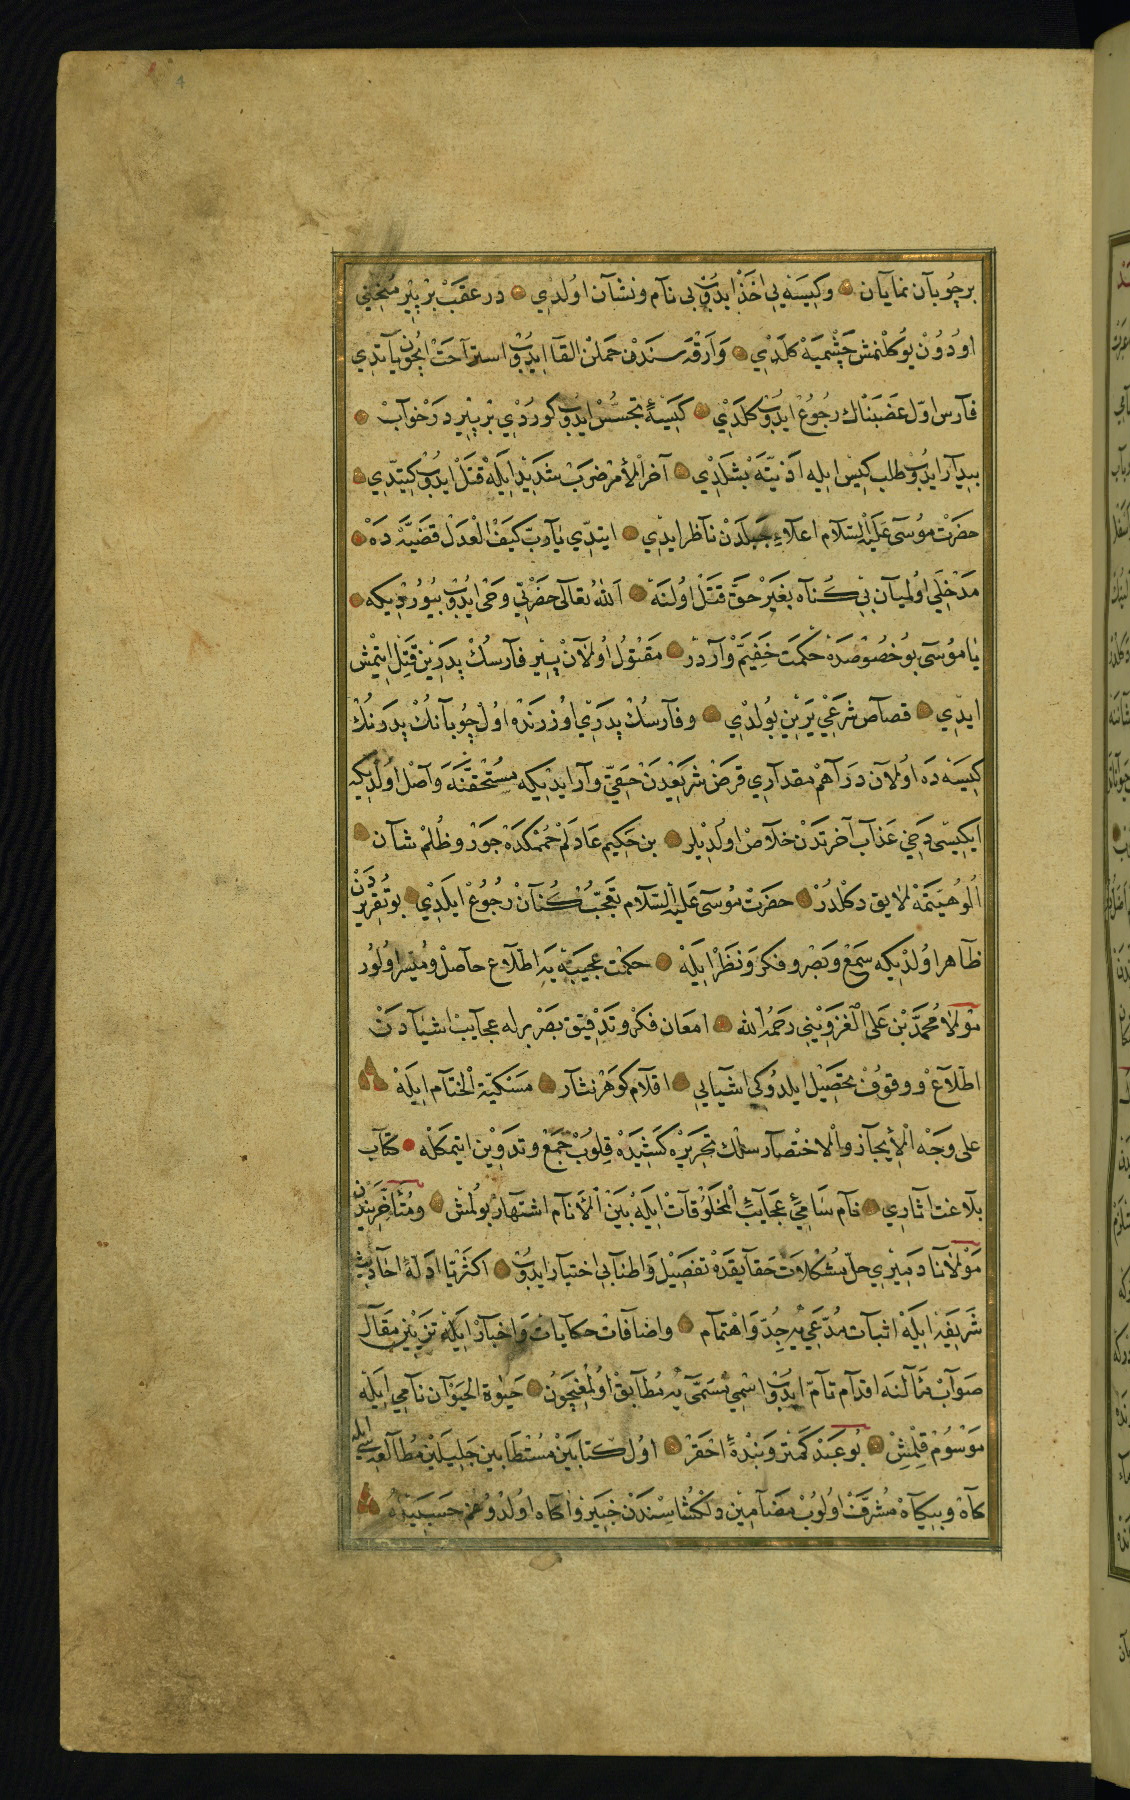 برچوبان نمایان وکیسه‌یی اخذ ایدوب بی نام ونشان اولدی درعقب بر پیر منحنی
اودون یوکلنمش چشمه‌یه کلدی وارقه‌سندن حملن القا ایدوب استراحت ایچون یاتدی
فارس اول غضبناک رجوع ایدوب کلدی کیسهٔ تجسس ایدوب کوردی بر پیر درخواب
بیدار ایدوب طلب کیس ایله اذیته بشلدی آخرالامر ضرب شدید ایله قتل ایدوب کیتدی
حضرت موسی علیه السلام اعلاء جبلدن ناظر ایدی ایتدی یارب کیف العدل قضیه‌ده
مدخلی اولمیان بی کناه بغیر حق قتل اولنه الله تعالی حضرتی وحی ایدوب بیوردیکه
یا موسی بو خصوصده حکمت خفیم واردر مقتول اولان پیر فارسک پدرین قتل ایتمش
ایدی قصاص شرعی یرین بولدی وفارسک پدری اوزرنده اول چوبانک پدرنک
کیسه‌ده اولان دراهم مقداری قرض شریعیدن حقی وار ایدیکه مستحقنه واصل اولدیکه
ایکیسی دخی عذاب آخرتدن خلاص اولدیلر بن حکیم عادلم حکممده جور وظلم شان
الوهیتمه لایق دکلدر حضرت موسی علیه السلام تعجب کنان رجوع ایلدی بو تقریردن
ظاهر اولدیکه سمع وبصر وفکر ونظر ایله حکمت عجیبه‌یه اطلاع حاصل ومیسر اولور
مولانا محمد بن علی القزوینی رحمه الله امعان فکر وتدقیق بصر برله عجایب اشیادن
اطلاع ووقوف تحصیل ایلدوکی اشیایی اقلام کوهر نثار مسکیة الختام ایله
علی وجه الایجاز والاختصار سلک تحریره کشیده قلوب جمع وتدوین ایتمکله کتاب
بلاغت اثاری نام سامیٔ عجایب المخلوقات ایله بین الانام اشتهار بولمش ومتأخریندن
مولانا دمیری حل مشکلات حقایقده تفصیل واطنابی اختیار ایدوب اکثریا ادلهٔ احادیث
شریفه ایله اثبات مدعی‌یه جد واهتمام واضافات حکایات واخبار ایله تزیین مقال
صواب مثالنه اقدام تام ایدوب اسمی مسمی‌یه مطابق اولمغیچون حیوة الحیوان نامی ایله
موسوم قلمش بو عبد کمتر وبندهٔ احقر اول کتابین مستطابین جلیلین مطالعه‌سی ایله
کاه وبیکاه مشرف اولوب مضامین دلکشاسندن خبیر واکاه اولدوغم حسبیله